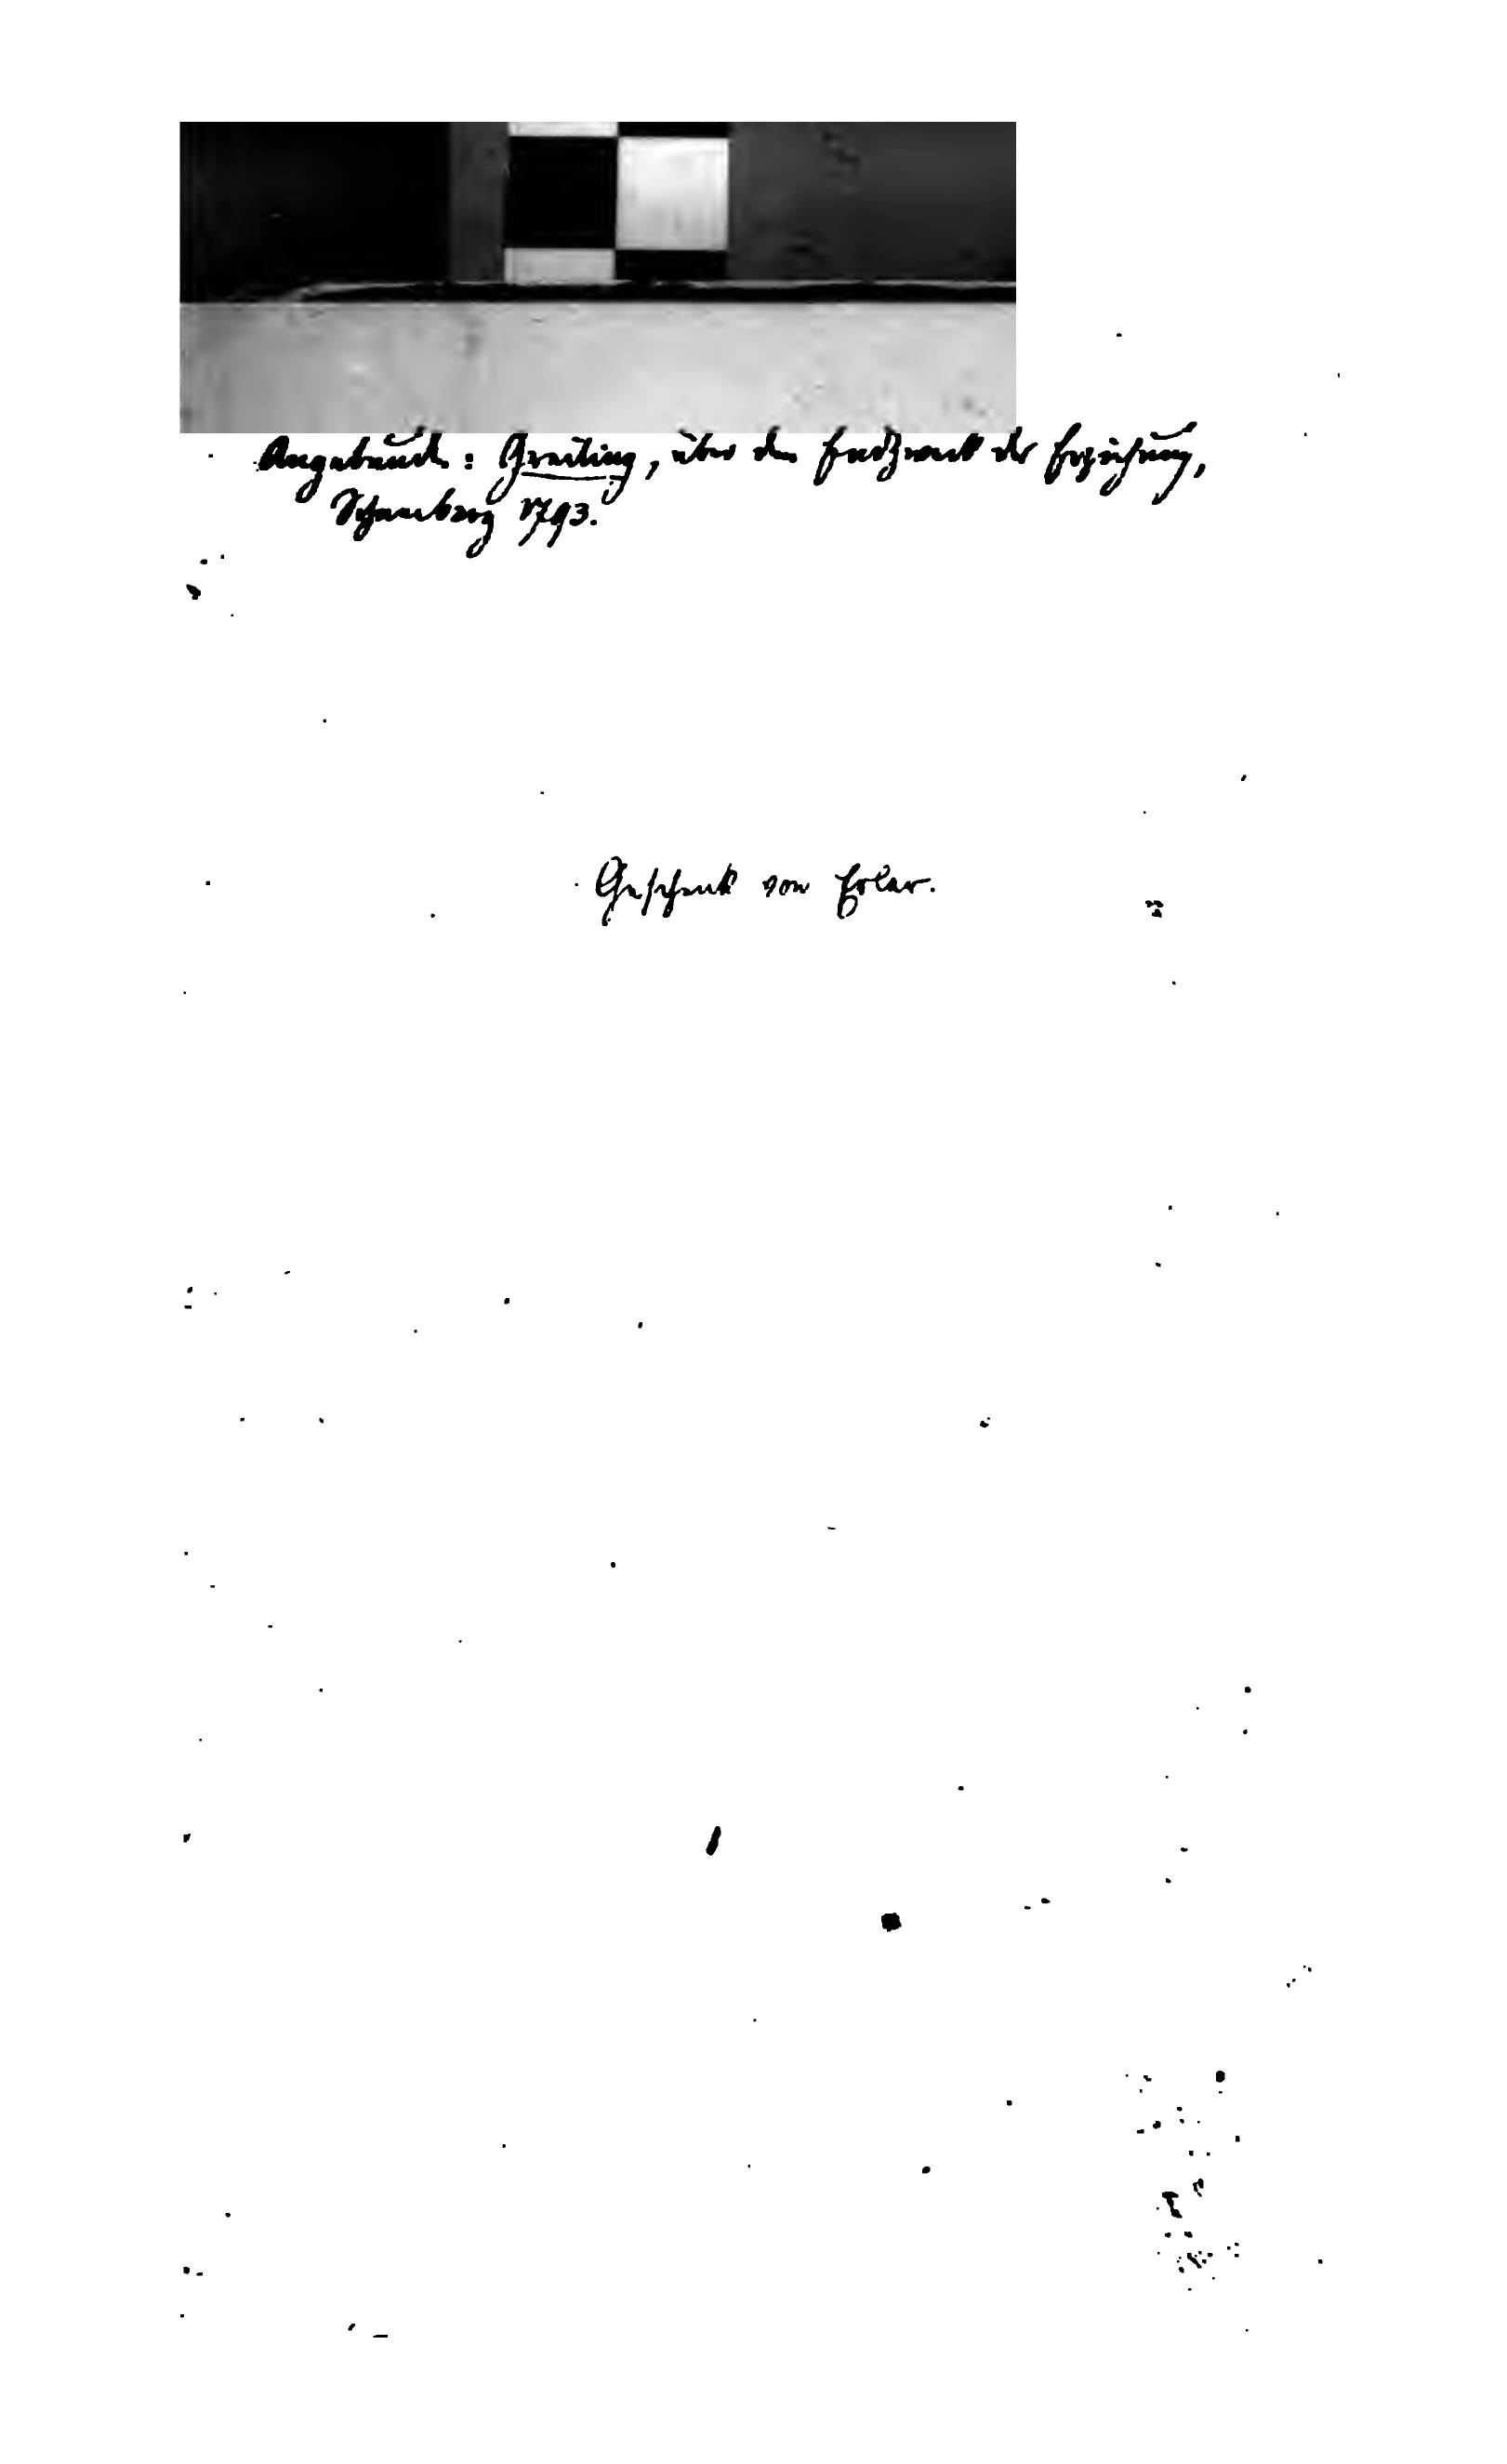 Angebund.: Greiling, über den Endzweck der Erziehung,
Schneeberg 1793.
Geschenk von Erler.